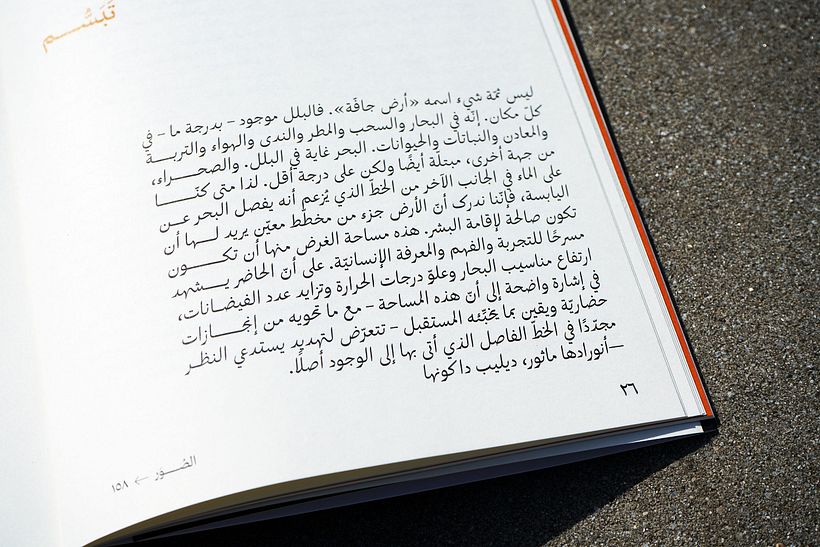 تَبَسُّم
ليس ثمّة شيء اسمه «أرض جافّة». فالبلل موجود – بدرجة ما – في
كلّ مكان. إنّه في البحار والسحب والمطر والندى والهواء والتربة
والمعادن والنباتات والحيوانات. البحر غاية في البلل. والصحراء،
من جهة أخرى، مبتلّة أيضًا ولكن على درجة أقل. لذا متى كنّا
على الماء في الجانب الآخر من الخطّ الذي يُزعم أنه يفصل البحر عن
اليابسة، فإنّنا ندرك أنّ الأرض جزء من مخطّط معيّن يريد لها أن
تكون صالحة لإقامة البشر. هذه مساحة الغرض منها أن تكون
مسرحًا للتجربة والفهم والمعرفة الإنسانيّة. على أنّ الحاضر يشهد
ارتفاع مناسيب البحار وعلوّ درجات الحرارة وتزايد عدد الفيضانات،
في إشارة واضحة إلى أنّ هذه المساحة – مع ما تحويه من إنجازات
حضاريّة ويقين بما يخبِّئه المستقبل – تتعرّض لتهديد يستدعي النظر
مجدّدًا في الخطّ الفاصل الذي أتى بها إلى الوجود أصلًا.
—أنورادها ماثور، ديليب دا كونها
٢٦
الصُّوَر ← ١٥٨